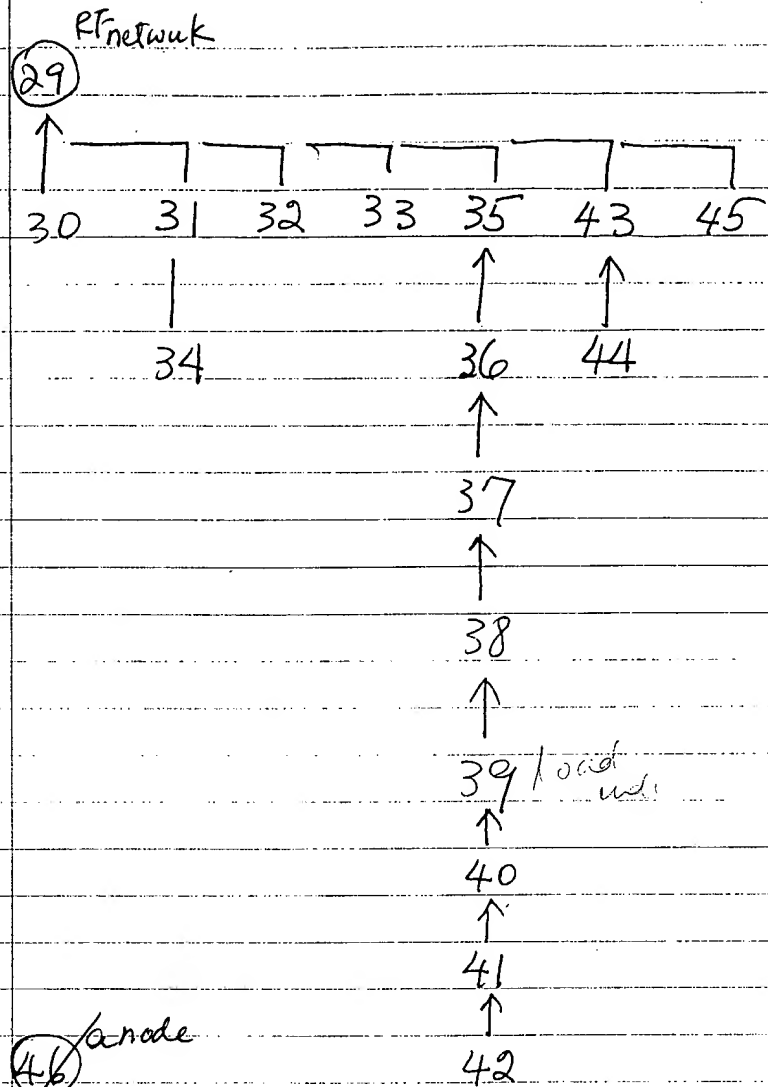 RT network
29
30 31 32 33 35 43 45
34 36 44
37
38
39
40
41
/a node
46 42